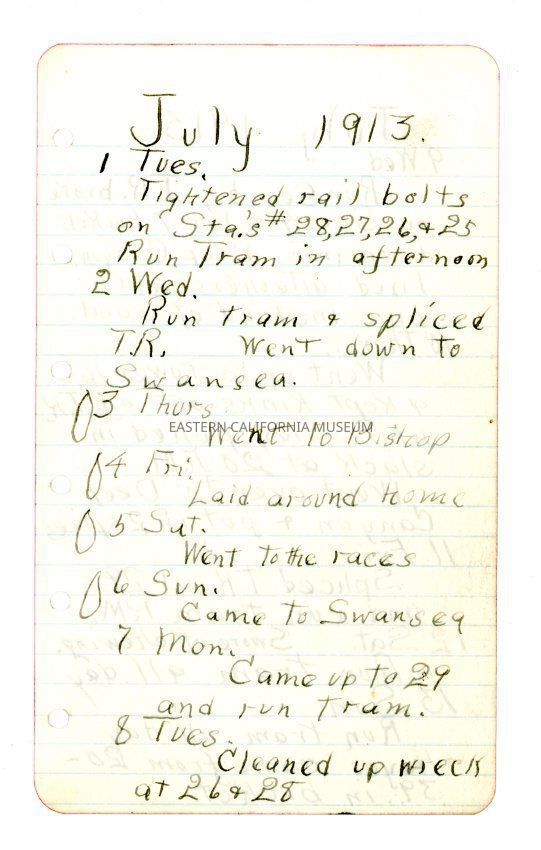 July 1913.
1 Tues.
Tightened rail bolts
on Sta.'s # 28, 27, 26, & 25
Run Tram in afternoon
2 Wed.
Run tram & spliced
T.R. Went down to
Swansea.
0 3 Thurs
EASTERN CALIFORNIA MUSEUM
Went To Bishop
0 4 Fri.
Laid around home
0 5 Sat.
Went to the races
0 6 Sun.
Came to Swansea
7 Mon.
Came up to 29
and run tram.
8 Tues.
Cleaned up wreck
at 26 & 28